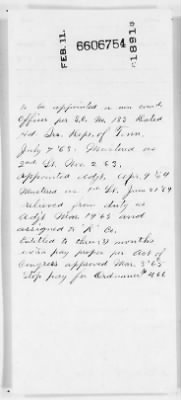 FEB. 11.
6606754
1891
to be appointed a non com
Officer per S.O. No. 183 Dated
Hd Qrs. Dept. of Tenn.
July 7 '63. Mustered as
2nd Lt. Nov. 2 63.
Appointed Adjt. Apr. 9 '64
Mustered as 1st Lt. June 21 '64
relieved from duty as
Adjt Mar. 1965 and
assigned to "K" Co.
Entitled to three (3) months
extra pay proper per Act of
Congress approved Mar. 3d 65
Stop pay for Ordnance